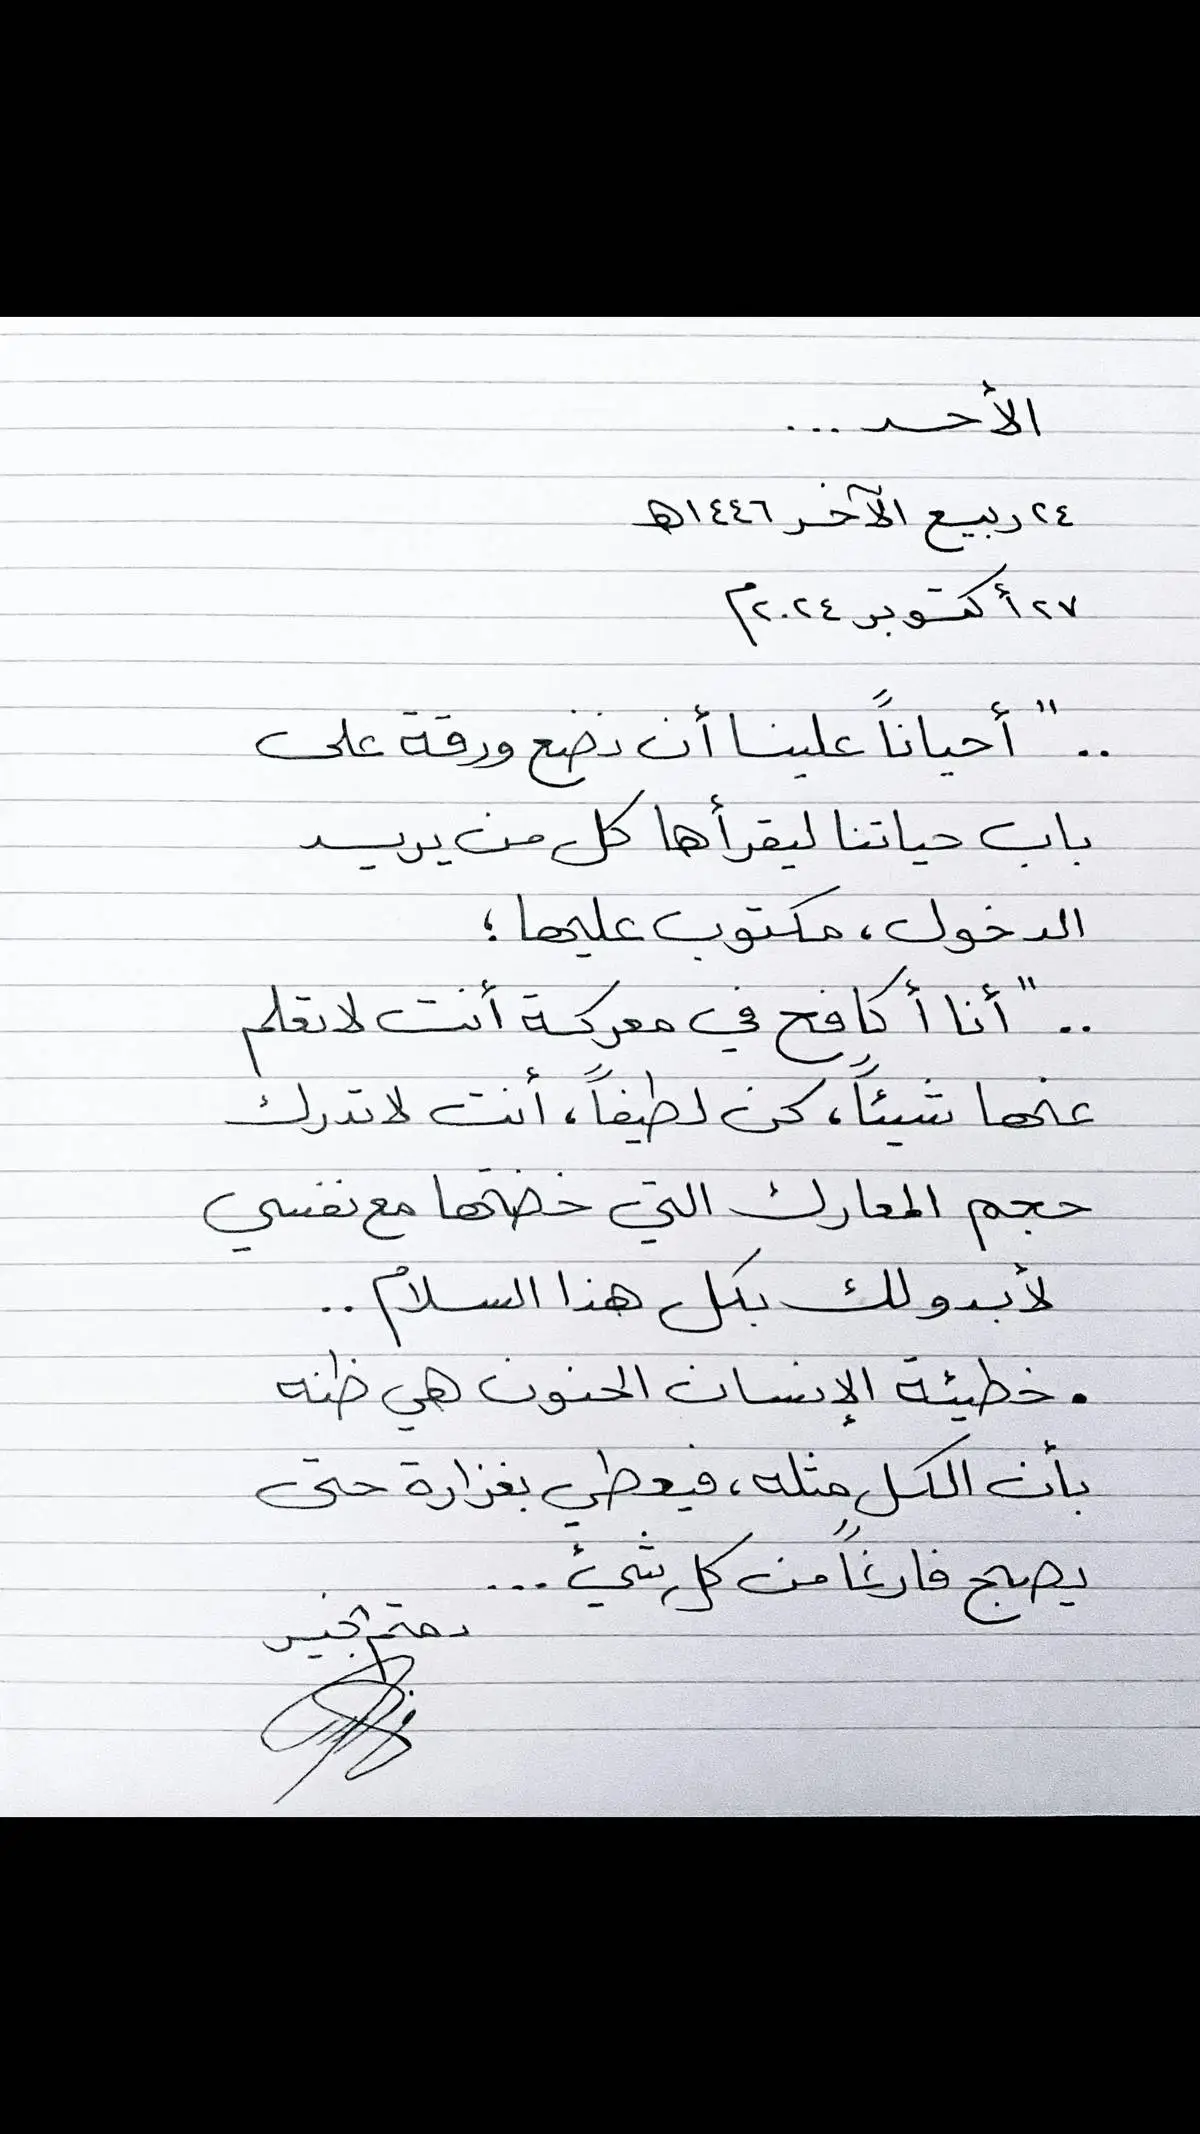 الأحد ...
٢٤ ربيع الآخر ١٤٤٦هـ
٢٧ أكتوبر ٢٠٢٤م
.. " أحياناً علينا أن نضع ورقة على
باب حياتنا ليقرأها كل من يريد
الدخول، مكتوب عليها؛
.. " أنا أكافح في معركة أنت لا تعلم
عنها شيئاً، كن لطيفاً، أنت لا تدرك
حجم المعارك التي خضتها مع نفسي
لأبدو لك بكل هذا السلام ..
• خطيئة الإنسان الحنون هي ظنه
بأن الكل مثله، فيعطي بغزارة حتى
يصبح فارغاً من كل شيئ ...
دمتم بخير